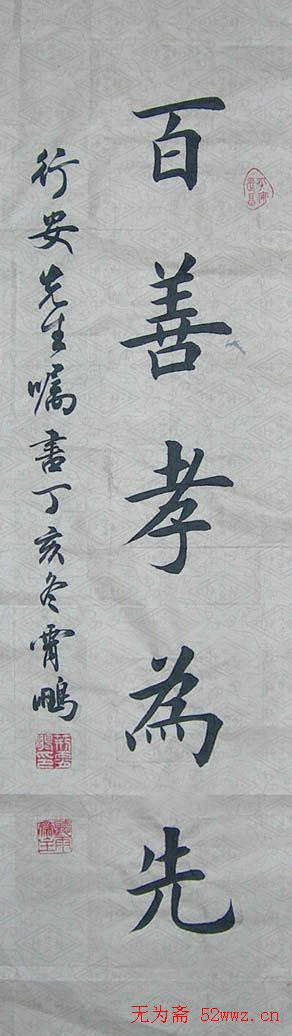 百善孝為先
行安先生嘱書丁亥冬霄鵬
无为斋 52wwz.cn